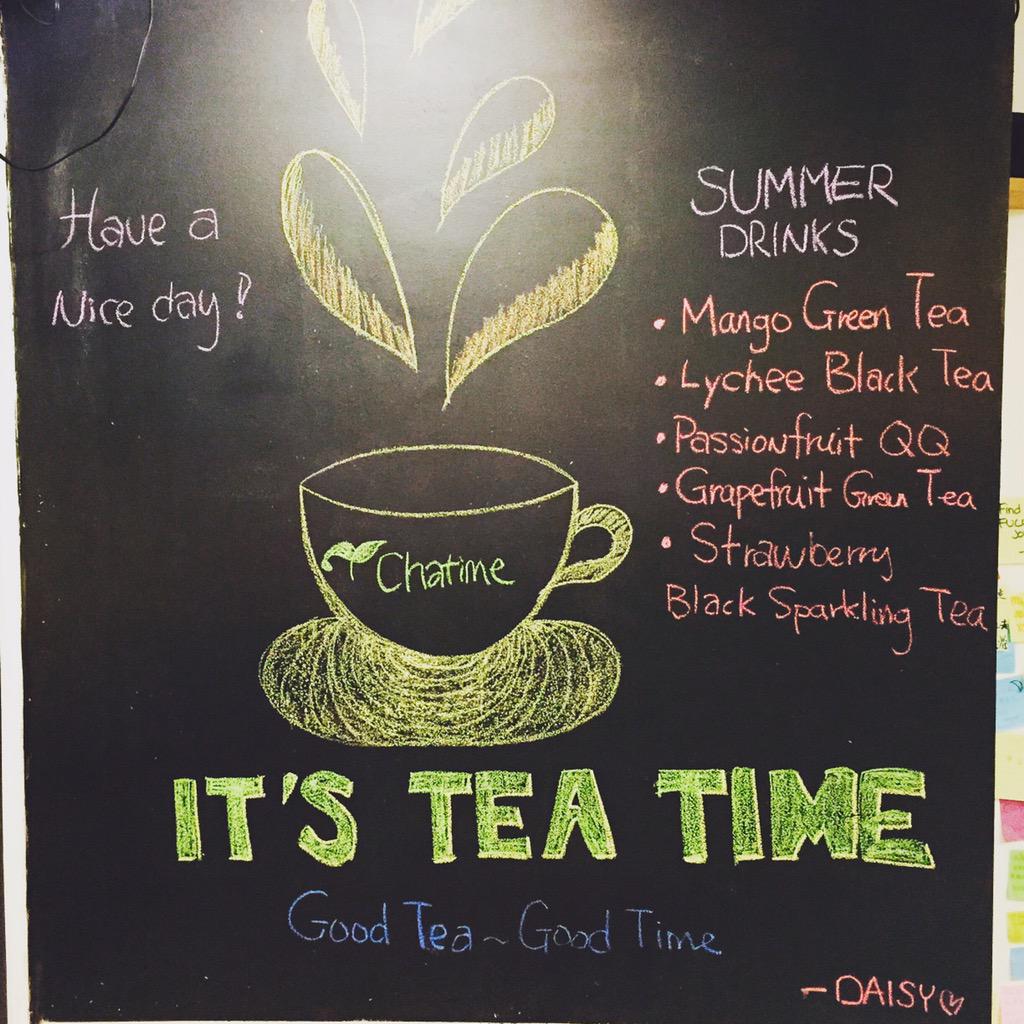 Have a
Nice day!
SUMMER
DRINKS
• Mango Green Tea
• Lychee Black Tea
• Passionfruit QQ
• Grapefruit Green Tea
• Strawberry
Black Sparkling Tea
Chatime
IT'S TEA TIME
Good Tea ~ Good Time
- DAISY♡
Find